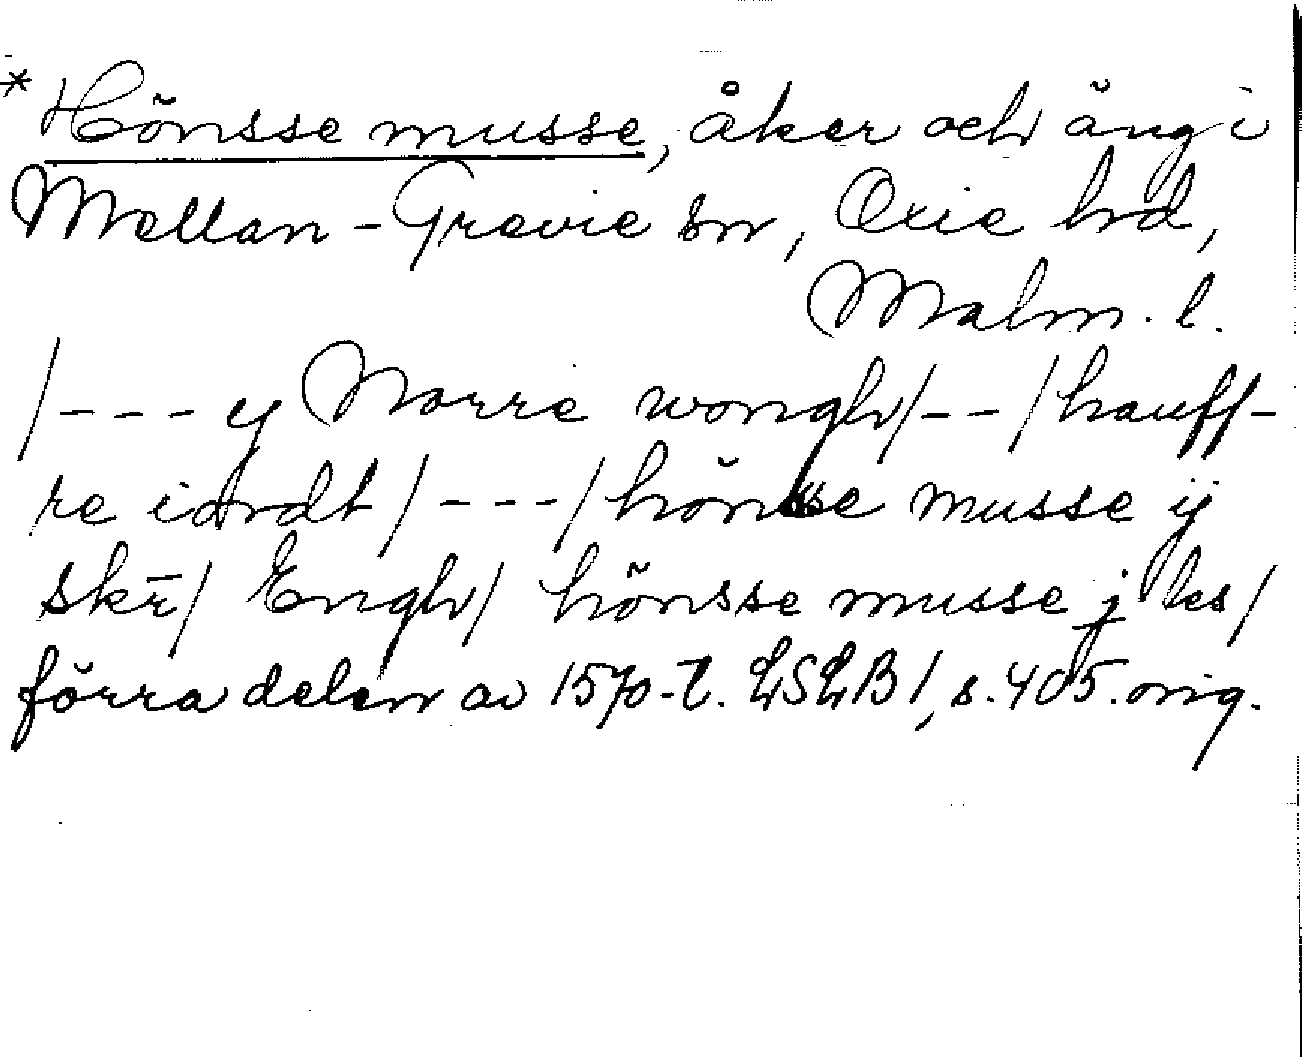 * Hönsse musse, åker och äng i
Mellan-Grevie sn, Oxie hd,
Malm. l.
/--- y Norre wongh/--/hauff-
re iordt/---/hönsse musse ij
skr̄/ Engh/ hönsse musse j ls/
förra delen av 1570-t. LSLB 1, s. 405. orig.